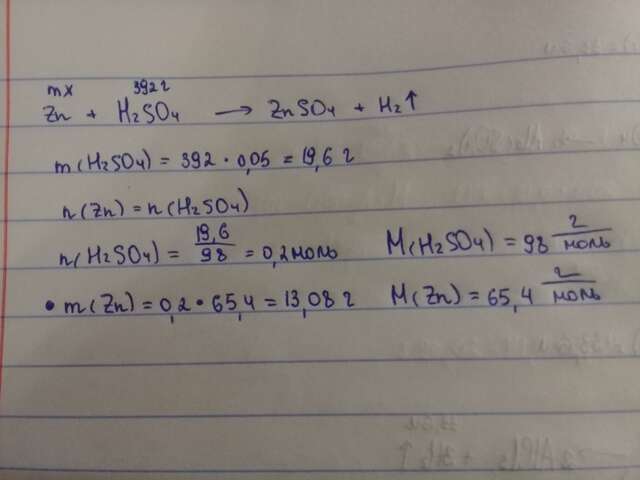 mx 392 г
Zn + H₂SO₄ → ZnSO₄ + H₂↑
m(H₂SO₄) = 392 · 0,05 = 19,6 г
n(Zn) = n(H₂SO₄)
n(H₂SO₄) = 19,6/98 = 0,2 моль M(H₂SO₄) = 98 г/моль
• m(Zn) = 0,2 · 65,4 = 13,08 г M(Zn) = 65,4 г/моль